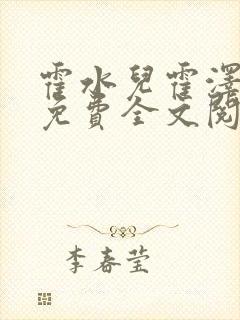 霍水兒霍澤
免費全文閱
李春莹